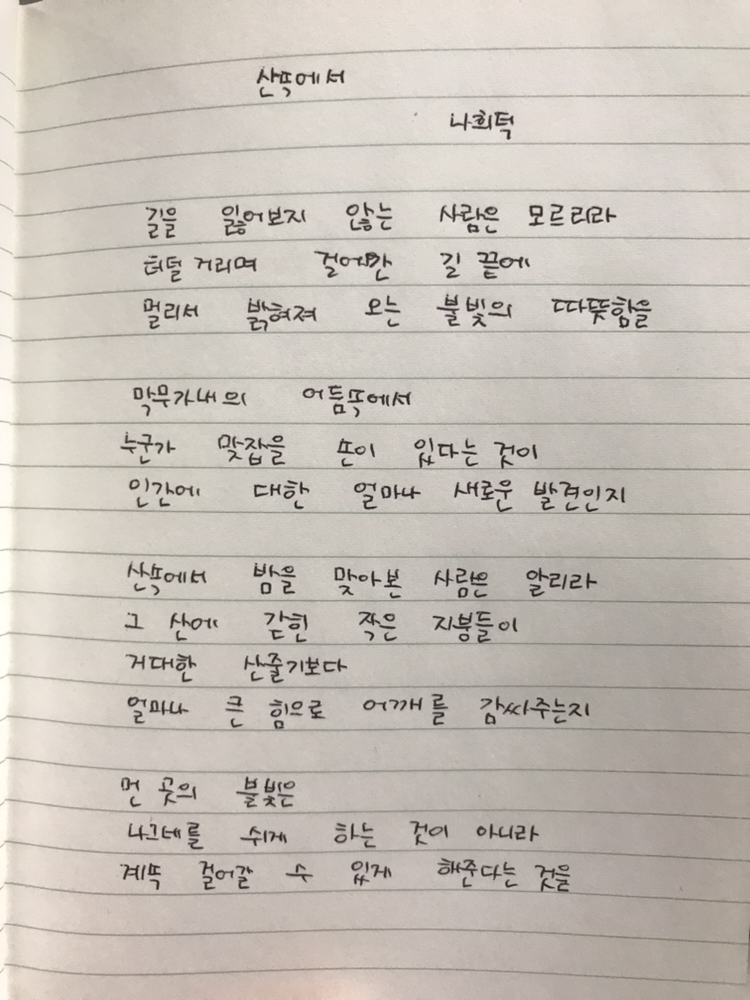 산속에서
나희덕
길을 잃어보지 않는 사람은 모르리라
터덜 거리며 걸어간 길 끝에
멀리서 밝혀져 오는 불빛의 따뜻함을
막무가내의 어둠속에서
누군가 맞잡을 손이 있다는 것이
인간에 대한 얼마나 새로운 발견인지
산속에서 밤을 맞아본 사람은 알리라
그 산에 갇힌 작은 지붕들이
거대한 산줄기보다
얼마나 큰 힘으로 어깨를 감싸주는지
먼 곳의 불빛은
나그네를 쉬게 하는 것이 아니라
계속 걸어갈 수 있게 해준다는 것을